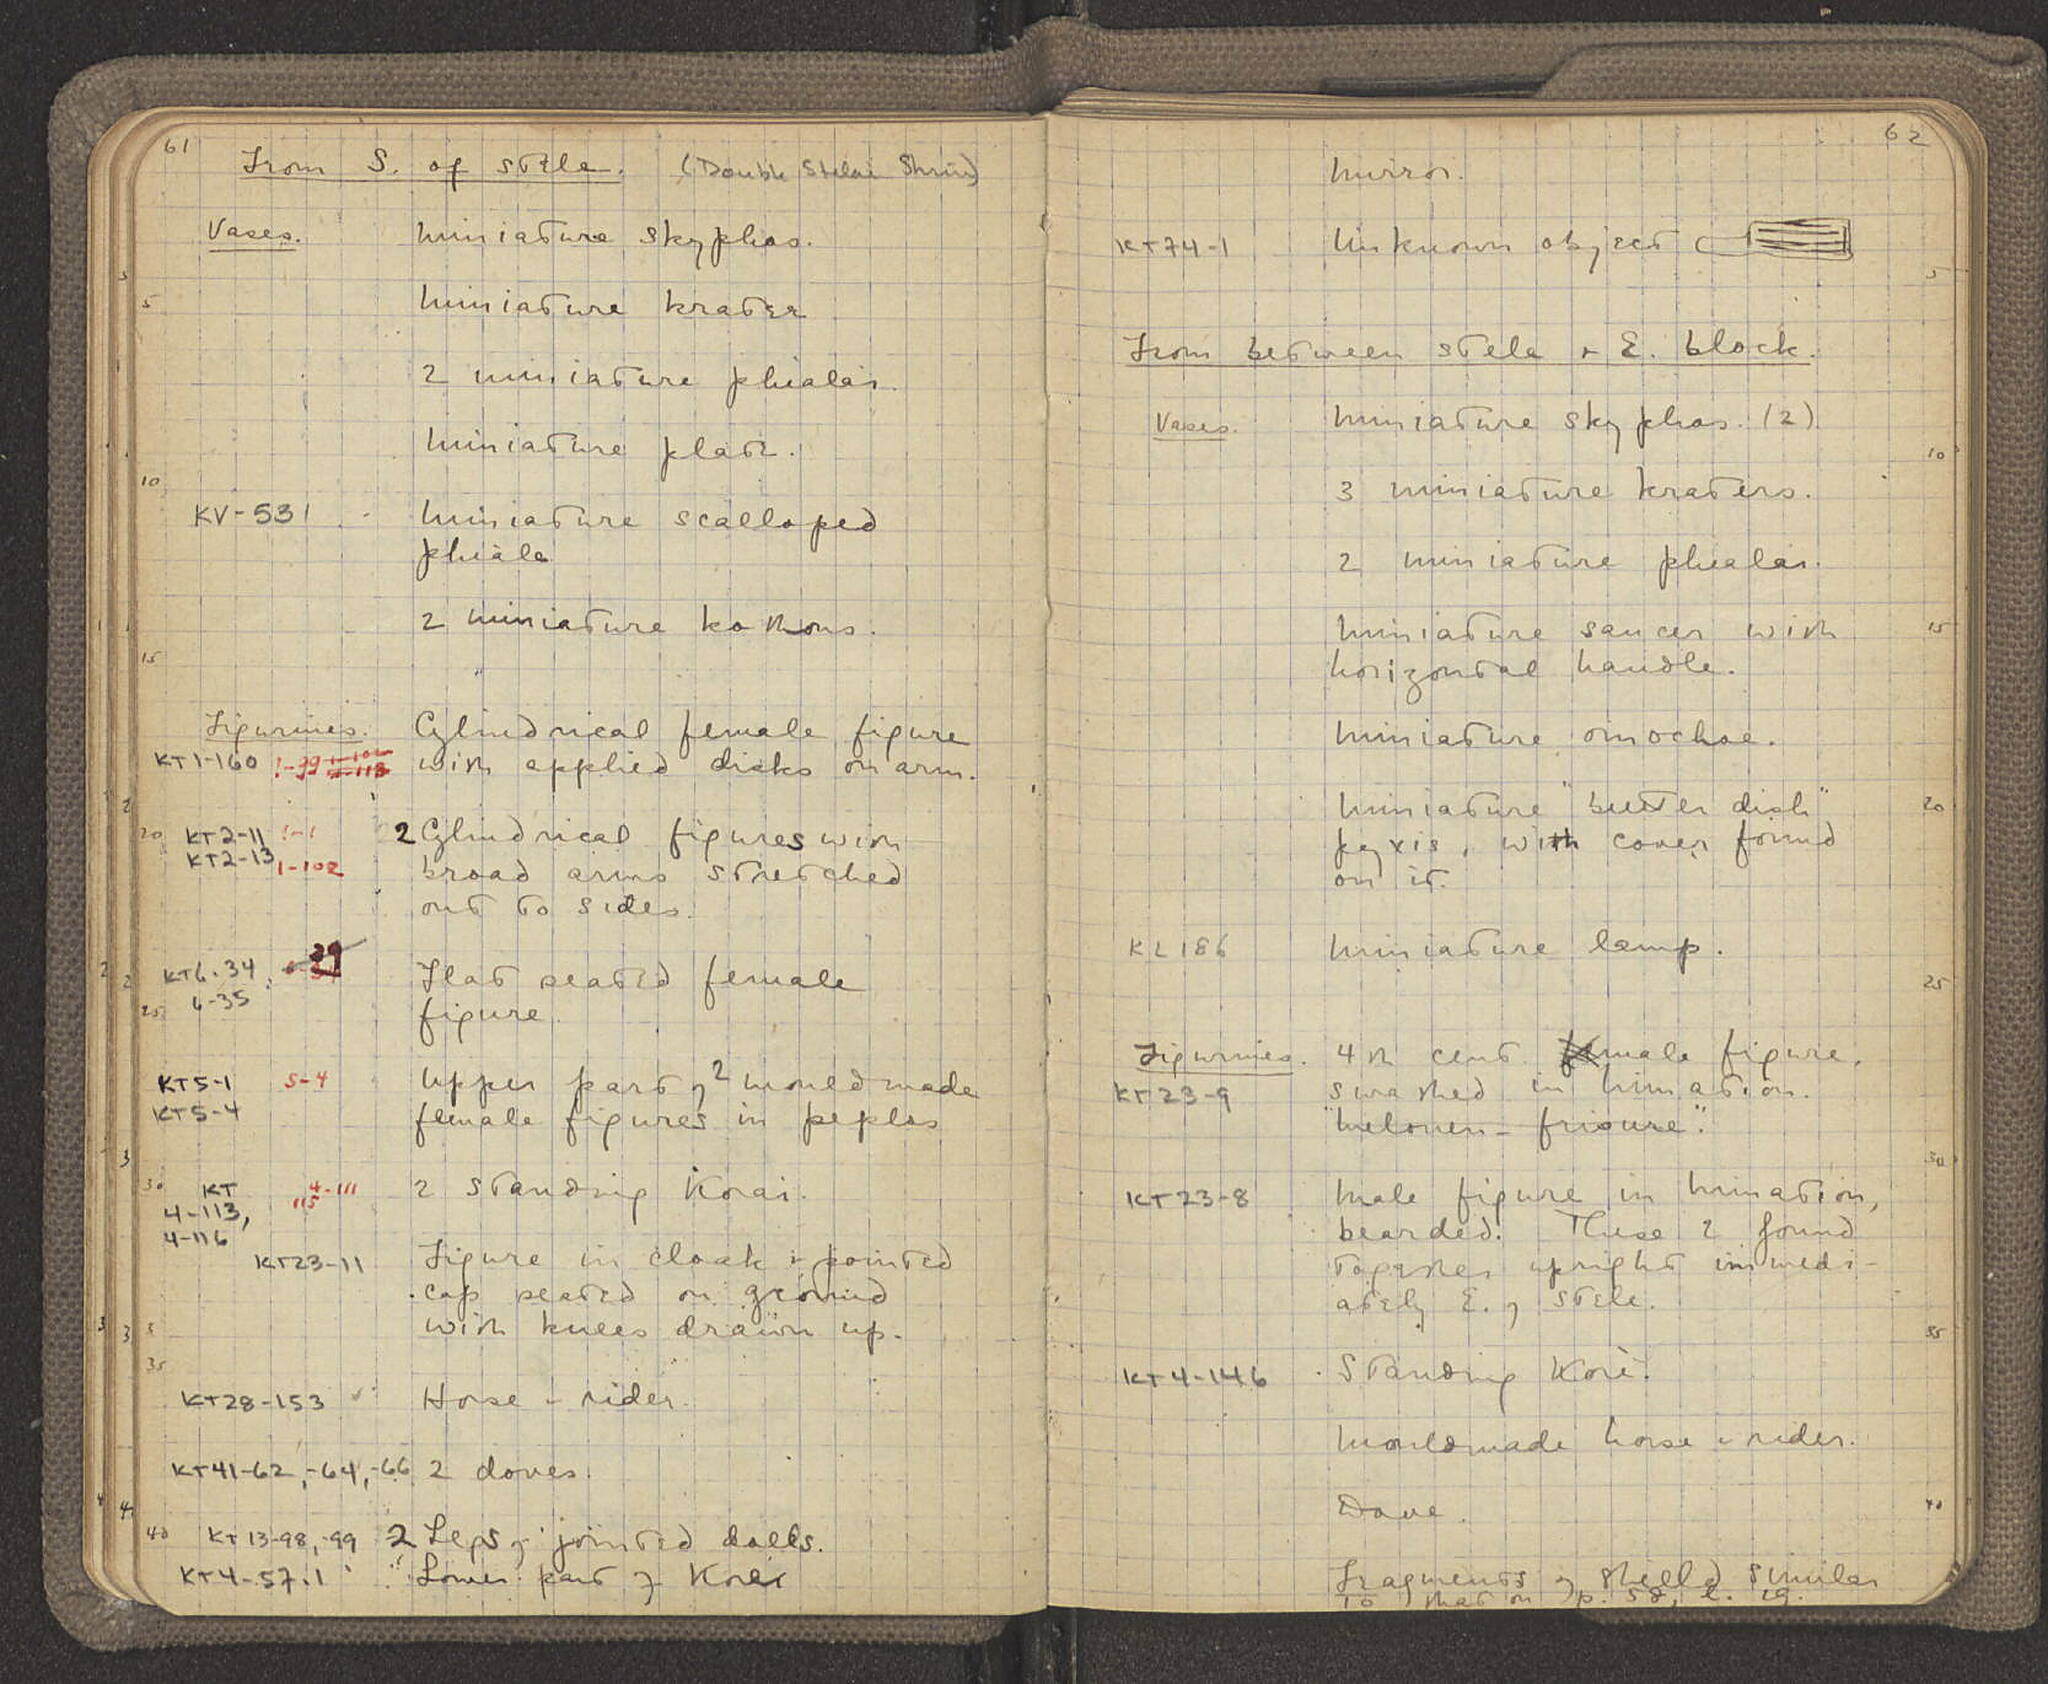 61
From S. of stele. (Double Stelai Shrine)
Vases. Miniature skyphos.
5 Miniature krater
2 miniature phialai.
Miniature plate.
10
KV-531 Miniature scalloped
phiale
2 miniature kothons.
15
Figurines. Cylindrical female figure
KT1-160 1-99 with applied disks on arm.
20 KT2-11 1-1 2 Cylindrical figures with
KT2-13 1-102 broad arms stretched
out to sides.
KT6-34 39 Flat seated female
6-35
25 figure.
KT5-1 5-4 Upper part of 2 mouldmade
KT5-4 female figures in peplos
30 KT 4-111 2 standing Korai.
4-113, 115
4-116
KT23-11 Figure in cloak & pointed
cap seated on ground
with knees drawn up.
35
KT28-153 Horse & rider.
KT41-62, -64, -66 2 doves.
40 KT13-98, -99 2 Legs of jointed dolls.
KT4-57.1 Lower part of Kore
62
Mirror.
KT74-1 Unknown object
5
From between stele & E. block.
Vases. Miniature skyphos. (2)
10
3 miniature kraters.
2 miniature phialai.
Miniature saucer with 15
horizontal handle.
Miniature oinochoe.
Miniature "butter dish" 20
pyxis, with cover found
on it.
KL186 Miniature lamp.
25
Figurines. 4th cent. female figure,
KT23-9 swathed in himation.
"Melonen-frisure".
30
KT23-8 Male figure in himation,
bearded. These 2 found
together upright immedi-
ately E. of stele.
35
KT4-146 Standing Kore.
Mouldmade horse & rider.
Dove. 40
Fragments of shield similar
to that on p. 58, l. 19.